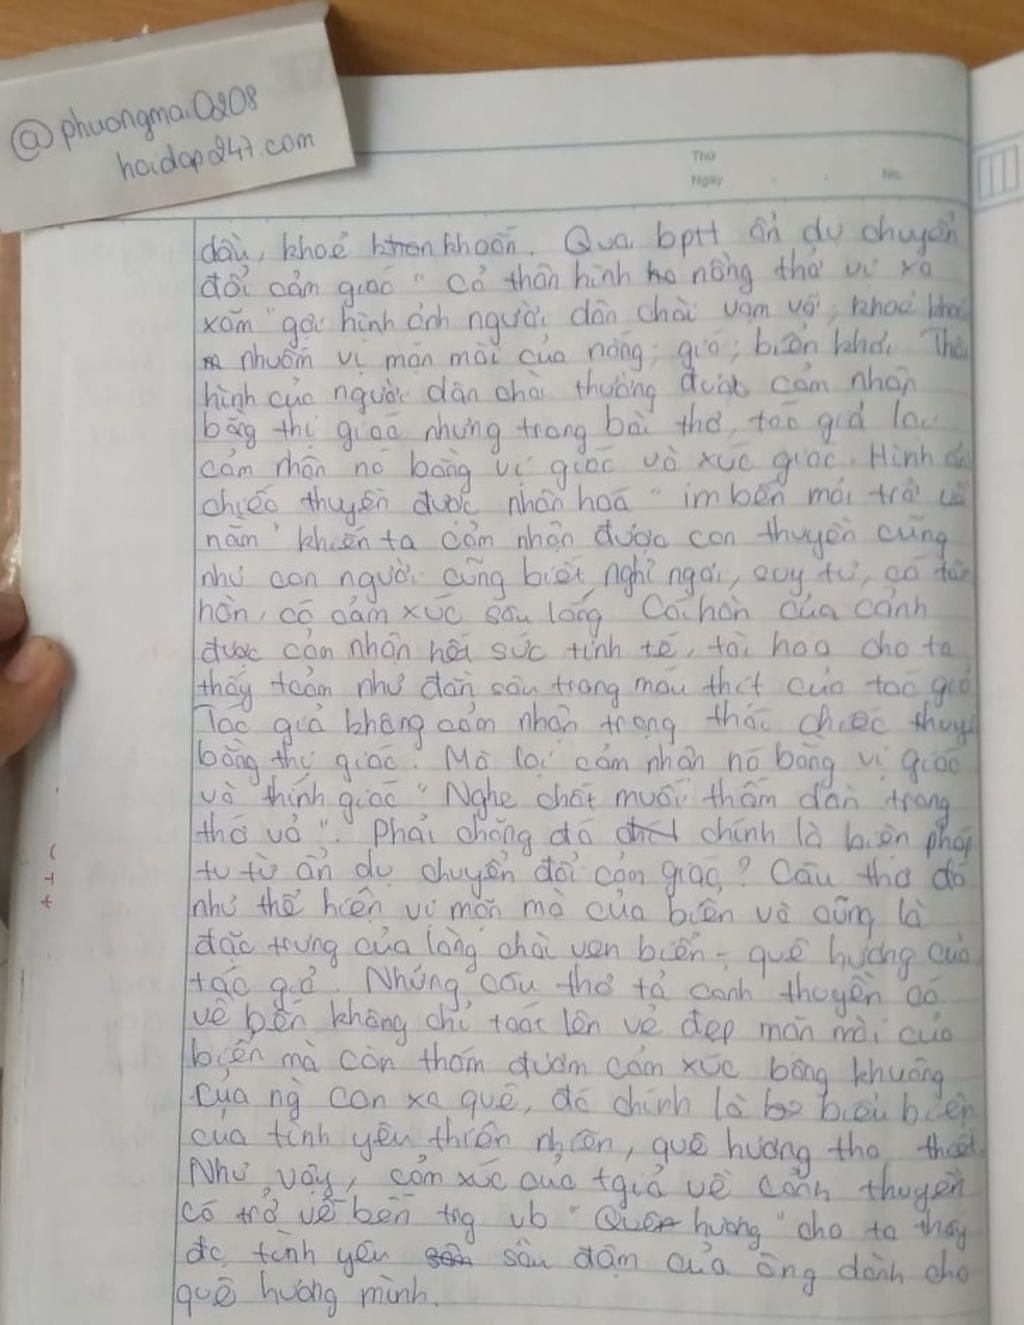 @phuongmai0208
hoidap247.com
Thứ
Ngày
No.
dầu, khoẻ khoắn. Qua bptt ẩn dụ chuyển
đổi cảm giác "Cả thân hình nồng thở vị xa
xăm" gợi hình ảnh người dân chài vạm vỡ, khoẻ
nhuốm vị mặn mòi của nắng; gió; biển khơi.
hình của người dân chài thường được cảm nhận
bằng thị giác nhưng trong bài thơ, tác giả lại
cảm nhận nó bằng vị giác và xúc giác. Hình
chiếc thuyền được nhân hoá "im bến mỏi trở về
nằm" khiến ta cảm nhận được con thuyền cũng
như con người cũng biết nghỉ ngơi, suy tư, có tâm
hồn, có cảm xúc sâu lắng. Cái hồn của cảnh
được cảm nhận hết sức tinh tế, tài hoa cho ta
thấy tcảm như dần sâu trong máu thịt của tác giả
Tác giả không cảm nhận trạng thái chiếc
bằng thị giác. Mà lại cảm nhận nó bằng vị giác
và thính giác "Nghe chất muối thấm dần trong
thớ vỏ". Phải chăng đó chính là biện pháp
tu từ ẩn dụ chuyển đổi cảm giác? Câu thơ đó
như thể hiện vị mặn mà của biển và cũng là
đặc trưng của làng chài ven biển - quê hương của
tác giả. Những câu thơ tả cảnh thuyền cá
về bến không chỉ toát lên vẻ đẹp mặn mòi của
biển mà còn thấm đượm cảm xúc bâng khuâng
của ng con xa quê, đó chính là biểu hiện
của tình yêu thiên nhiên, quê hương tha thiết.
Như vậy, cảm xúc của tgiả về cảnh thuyền
cá trở về bến trg vb "Quê hương" cho ta thấy
đc tình yêu sâu đậm của ông dành cho
quê hương mình.